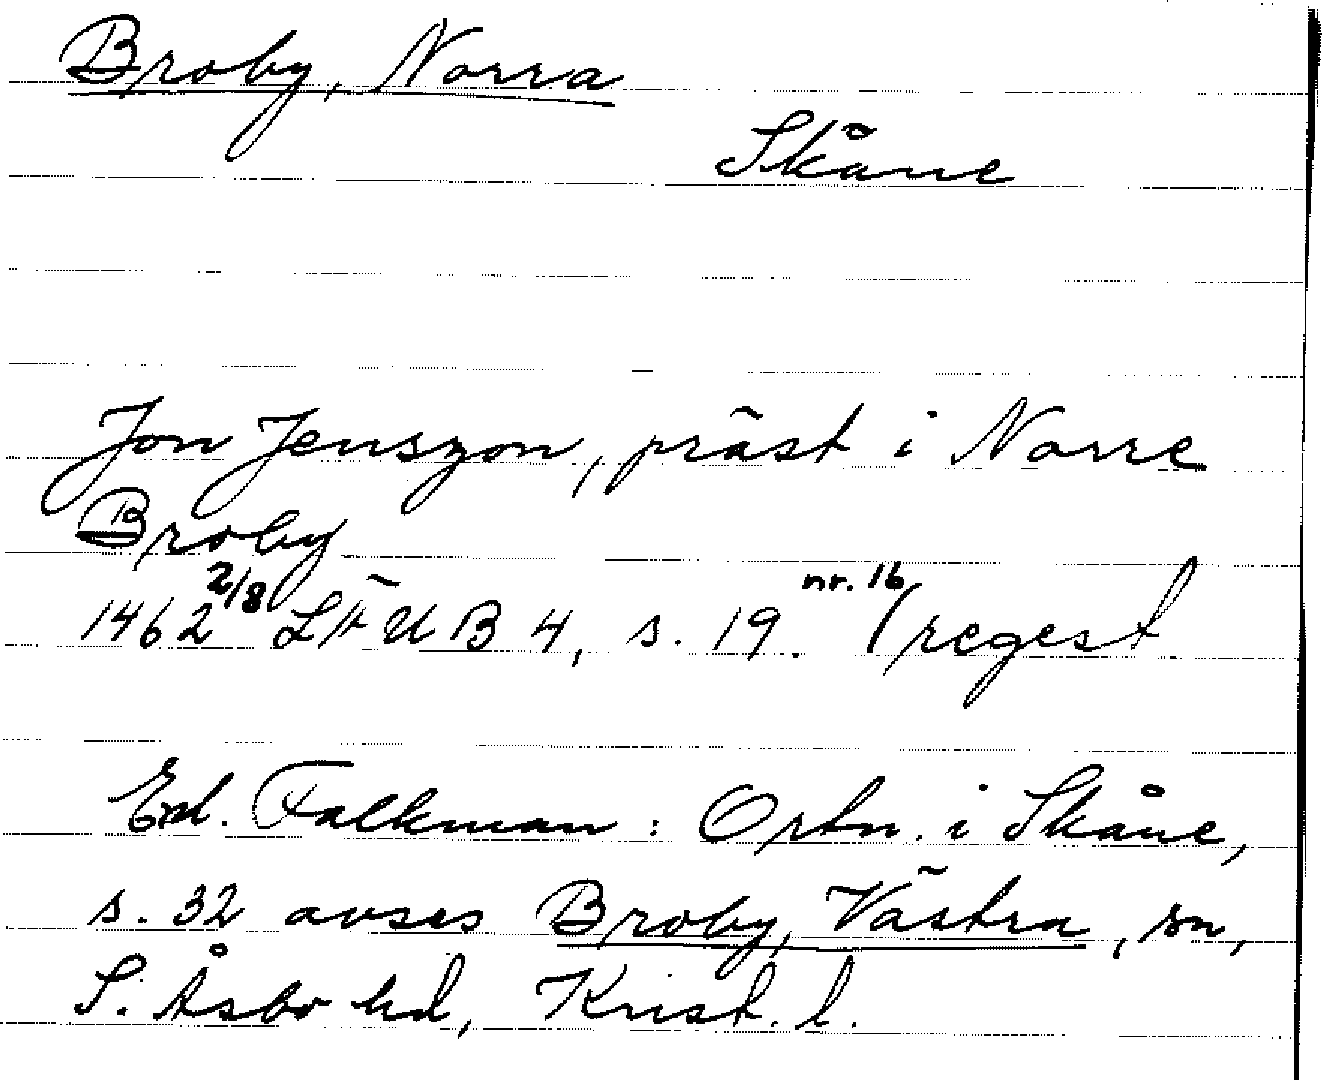 Broby, Norra
Skåne
Jon Jenszon, präst i Norre
Broby
1462 2/8 LÄUB 4, s. 19. nr. 16 (regest
Ed. Falkman: Ortn. i Skåne,
s. 32 avses Broby, Västra, sn,
S. Åsbo hd, Krist. l.